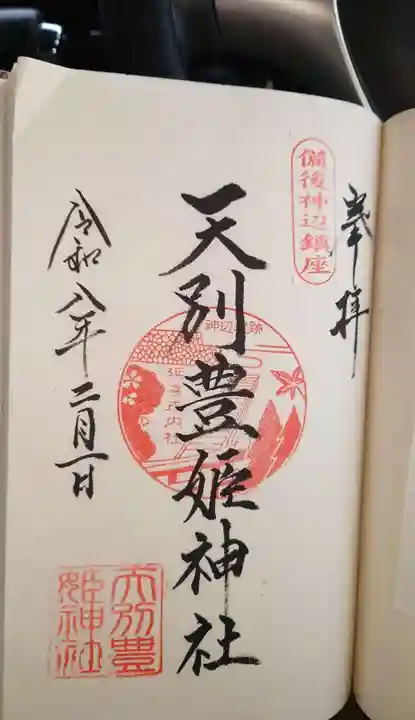 奉拝
備後神辺鎮座
天別豊姫神社
神辺城跡
延喜式内社
天別豊
姫神社
令和八年二月一日